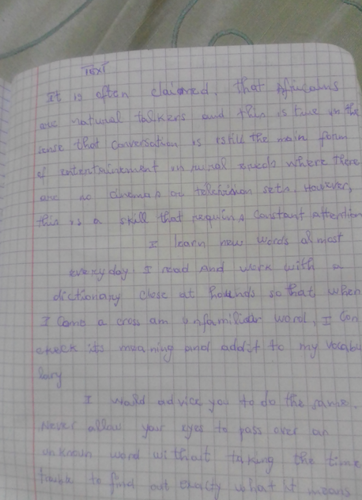 Text
It is often claimed, that Africans
are natural talkers and this is true in the
sense that conversation is still the main form
of entertainement in rural where there
are no cinemas or television sets. However,
this is a skill that requires constant attention
I learn new words almost
everyday I read and work with a
dictionary close at hounds so that when
I come a cross am unfamilider word, I can
check its meaning and addit to my vocabu
lary
I wald advice you to do the same.
Never allow your eyes to pass over an
unknown word without taking the time
to find out exactly what it means